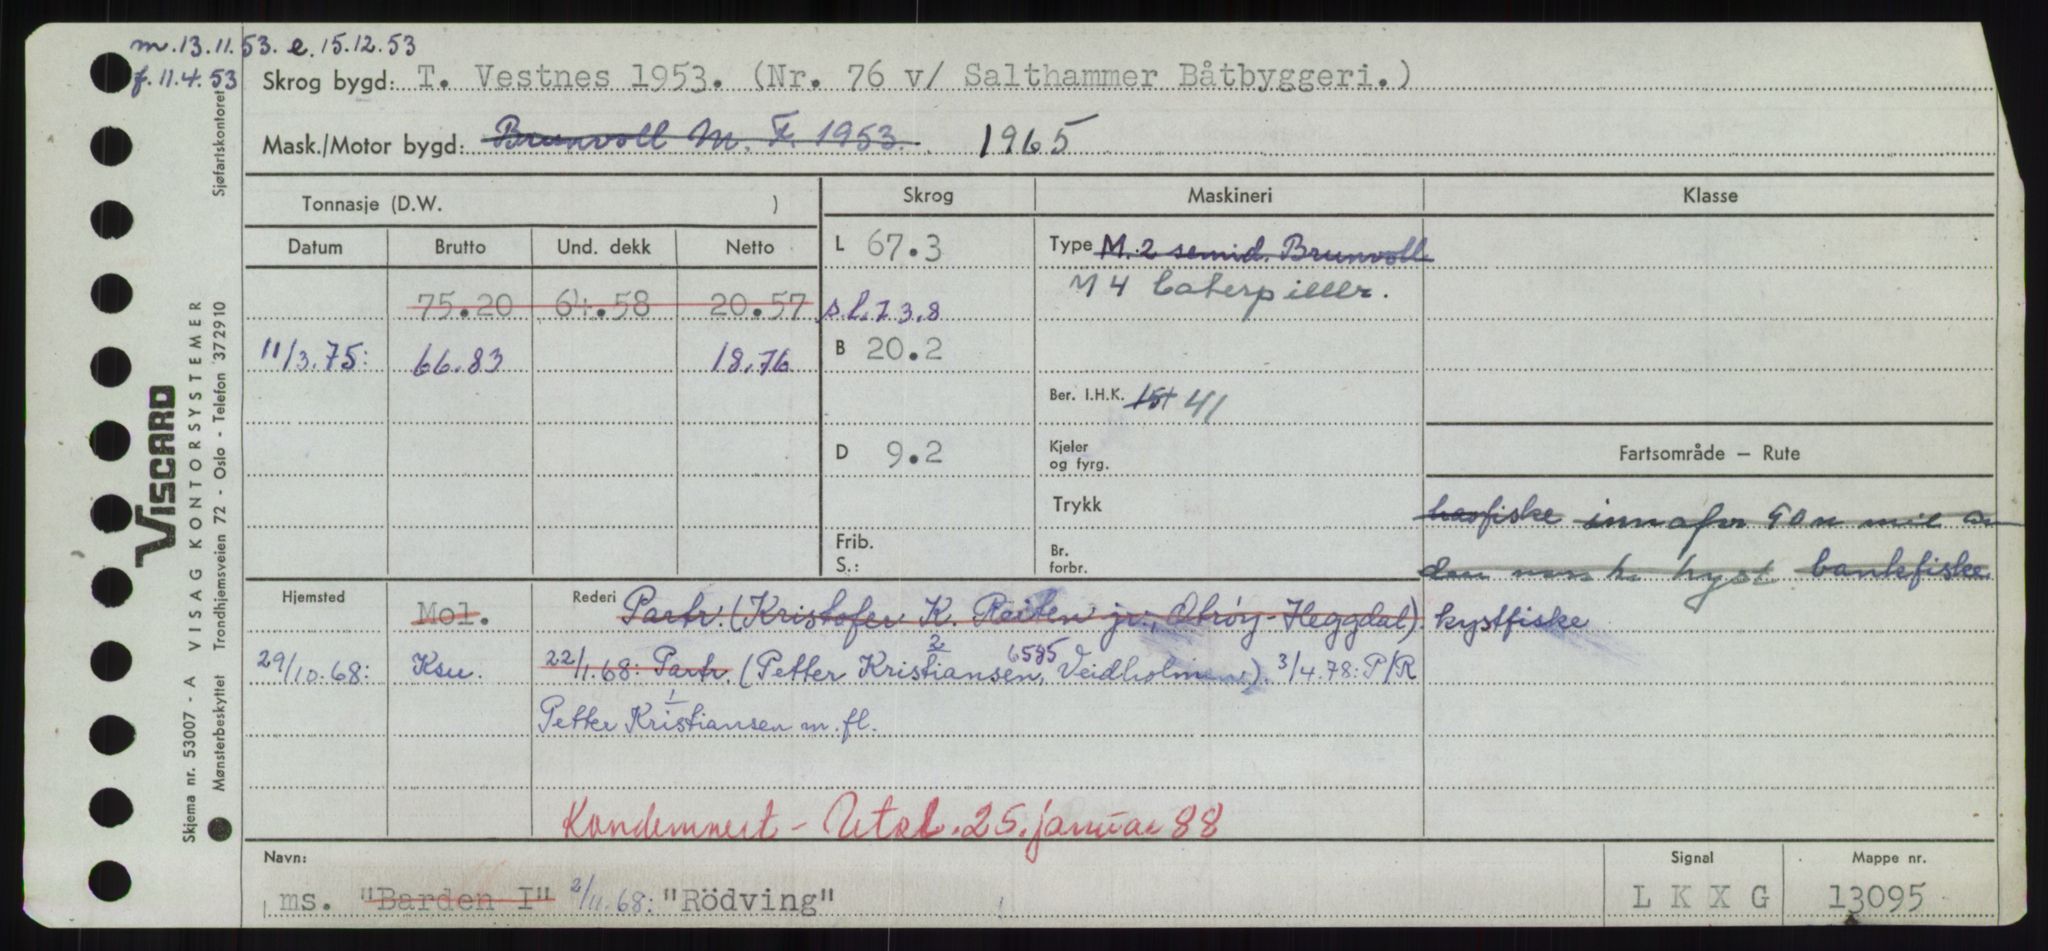 m. 13.11.53. e. 15.12.53
f. 11.4.53
Skrog bygd: T. Vestnes 1953. (Nr. 76 v/ Salthammer Båtbyggeri.)
Mask./Motor bygd: Brunvoll M. F. 1953. 1965
Tonnasje (D.W. )
Skrog
Maskineri
Klasse
Datum Brutto Und. dekk Netto
L 67.3
Type M. 2 semid. Brunvoll
M 4 Caterpiller.
75.20 64.58 20.57
s.l. 73.8
11/3.75: 66.83 18.76
B 20.2
Ber. I.H.K. 41
D 9.2
Kjeler
og fyrg.
Fartsområde — Rute
Trykk
havfiske innafor 90 n mil av
den norske kyst bankfiske
Frib.
S.:
Br.
forbr.
Hjemsted Mol.
Rederi Partr. (Kristofer K. Reiten jr., Otrøy-Heggdal). kystfiske
29/10.68: Ksu. 22/1.68: Partr. (Petter Kristiansen, 6585 Veidholmen). 3/4.78: P/R
2
1
Petter Kristiansen m. fl.
Kondemnert - Utgl. 25. januar 88
Navn:
ms. "Barden I" 2/11.68: "Rödving"
Signal
L K X G
Mappe nr.
13095
VISCARD
Skjema nr. 53007 - A VISAG KONTORSYSTEMER
Mønsterbeskyttet Trondhjemsveien 72 - Oslo - Telefon 372910
Sjøfartskontoret